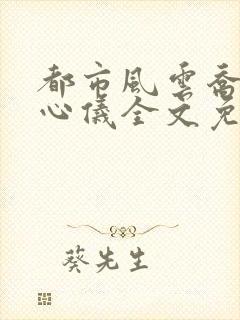 都市風雲喬
心儀全文免
葵先生